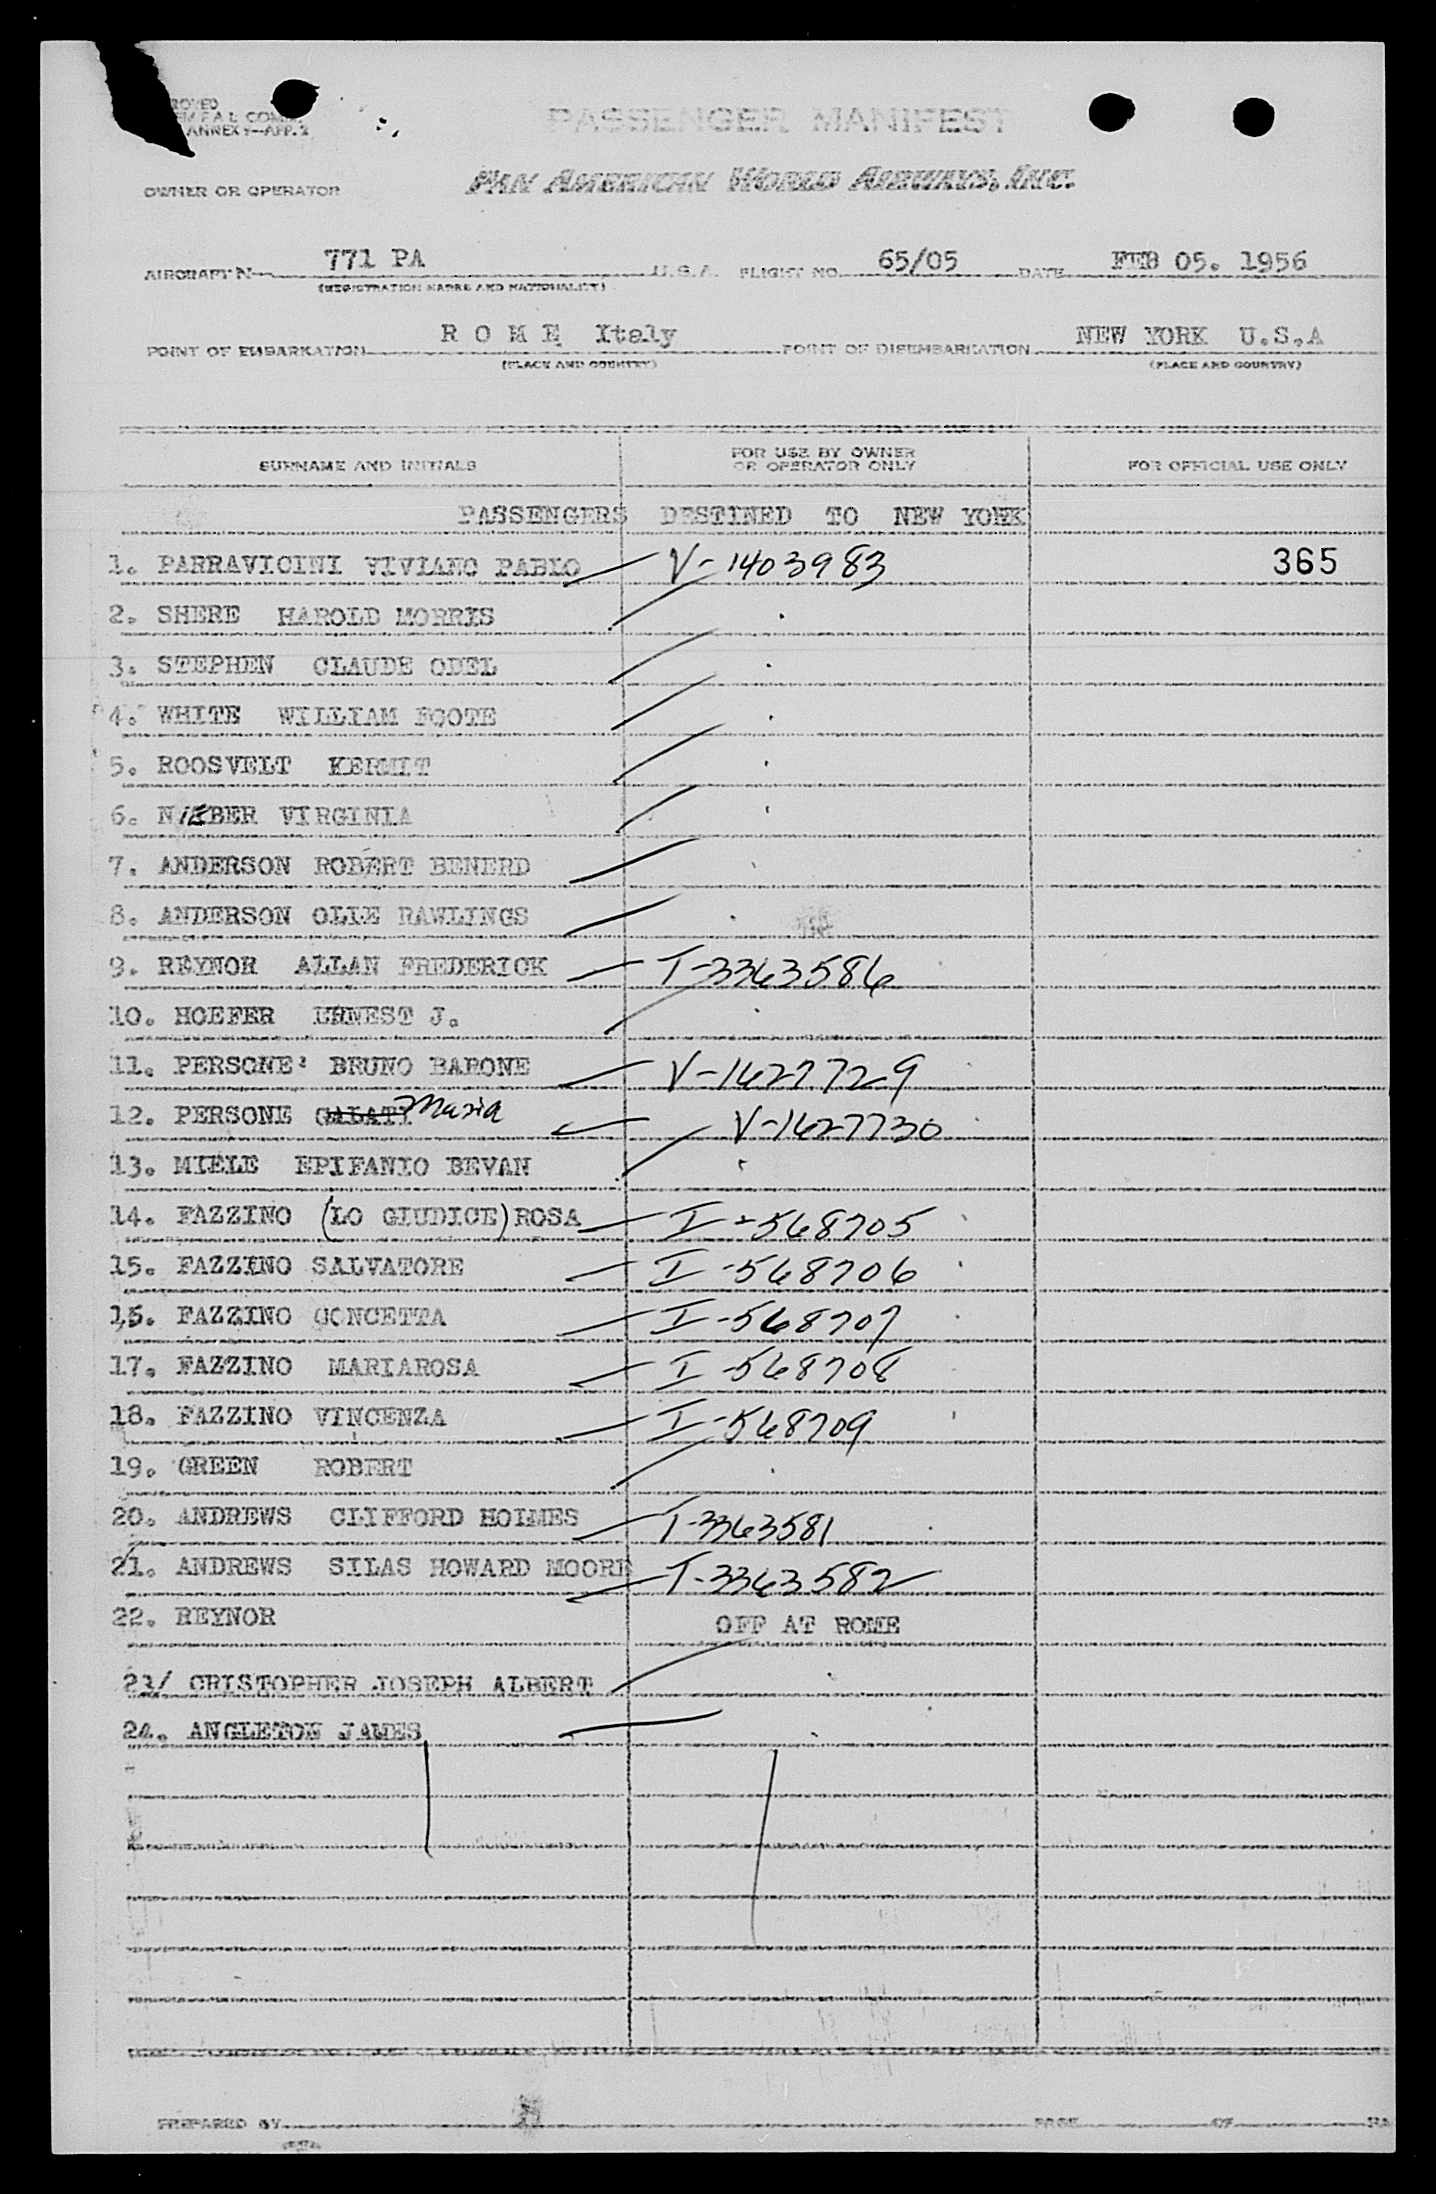 ROVED
F A L COMM.
ANNEX 9—APP. 2
PASSENGER MANIFEST
OWNER OR OPERATOR PAN AMERICAN WORLD AIRWAYS, INC.
AIRCRAFT N 771 PA U.S.A. FLIGHT NO. 65/05 DATE FEB 05. 1956
(REGISTRATION MARKS AND NATIONALITY)
POINT OF EMBARKATION R O M E Italy POINT OF DISEMBARKATION NEW YORK U.S.A
(PLACE AND COUNTRY) (PLACE AND COUNTRY)
SURNAME AND INITIALS FOR USE BY OWNER OR OPERATOR ONLY FOR OFFICIAL USE ONLY
PASSENGERS DESTINED TO NEW YORK
1. PARRAVICINI VIVIANO PABLO V-1403983 365
2. SHERE HAROLD MORRIS
3. STEPHEN CLAUDE ODEL
4. WHITE WILLIAM FOOTE
5. ROOSVELT KERMIT
6. NIEBER VIRGINIA
7. ANDERSON ROBERT BENERD
8. ANDERSON OLIE RAWLINGS
9. REYNOR ALLAN FREDERICK T-3363586
10. HOEFER ERNEST J.
11. PERSONE' BRUNO BARONE V-1627729
12. PERSONE GALATI Maria V-1627730
13. MIELE EPIFANIO BEVAN
14. FAZZINO (LO GIUDICE) ROSA I-568705
15. FAZZINO SALVATORE I-568706
15. FAZZINO CONCETTA I-568707
17. FAZZINO MARIAROSA I-568708
18. FAZZINO VINCENZA I-568709
19. GREEN ROBERT
20. ANDREWS CLIFFORD HOLMES T-3363581
21. ANDREWS SILAS HOWARD MOORE T-3363582
22. REYNOR OFF AT ROME
23/ CRISTOPHER JOSEPH ALBERT
24. ANGLETON JAMES
PREPARED BY PAGE OF